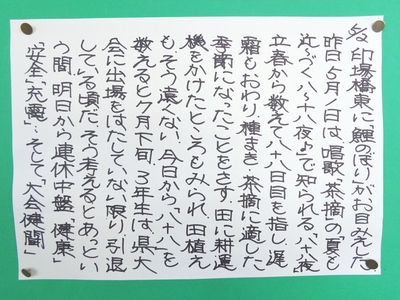 5/2 印場橋東に鯉のぼりがお目みえした
昨日5月1日は、唱歌「茶摘」の「夏も
近づく八十八夜♪」で知られる「八十八夜」
立春から数えて八十八日目を指し、遅
霜もおわり種まき、茶摘に適した
季節になったことをさす。田に耕運
機をかけたところもみられ、田植え
もそう遠くない。今日から「八十八」を
数えると7月下旬。3年生は県大
会に出場をはたしていない限り、引退
している頃だ。そう考えるとあっとい
う間。明日から連休中盤。「健康」
「安全」「充電」…そして「大会健闘」